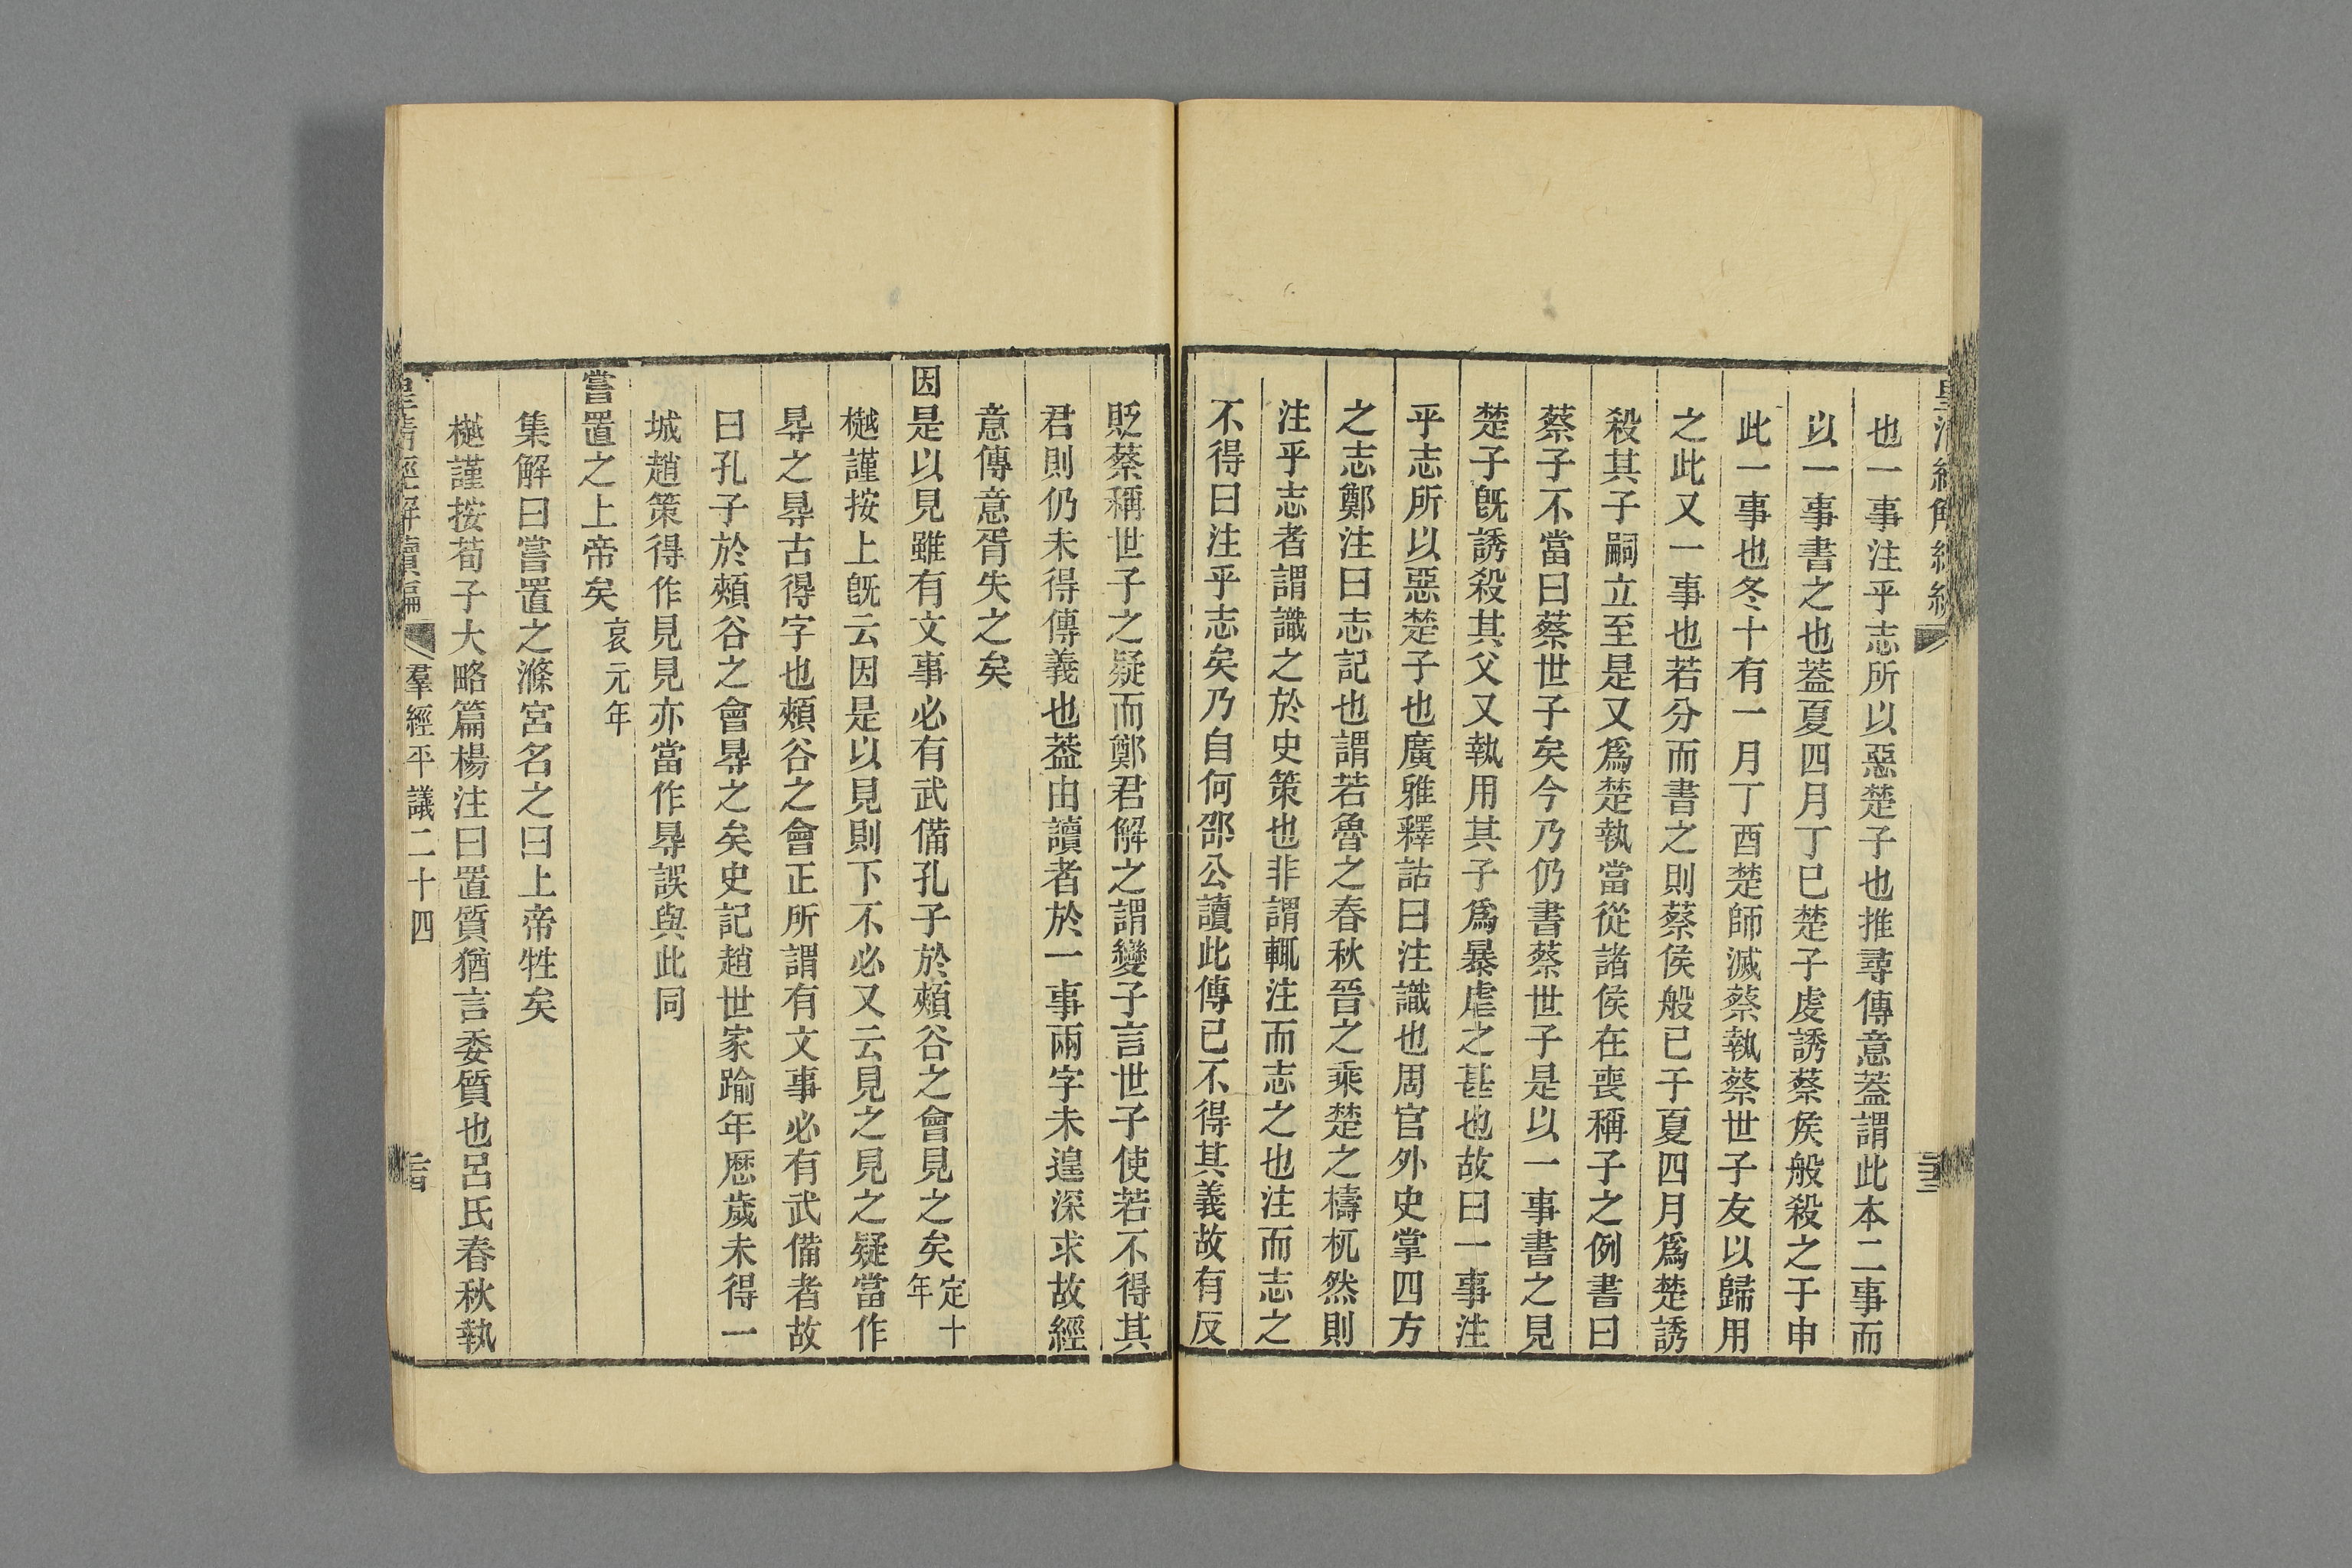 也一事注乎志所以惡楚子也推尋傳意蓋謂此本二事而
以一事書之也蓋夏四月丁巳楚子虔誘蔡侯般殺之于申
此一事也冬十有一月丁酉楚師滅蔡執蔡世子友以歸用
之此又一事也若分而書之則蔡侯般已于夏四月爲楚誘
殺其子嗣立至是又爲楚執當從諸侯在喪稱子之例書曰
蔡子不當曰蔡世子矣今乃仍書蔡世子是以一事書之見
楚子旣誘殺其父又執用其子爲暴虐之甚也故曰一事注
乎志所以惡楚子也廣雅釋詁曰注識也周官外史掌四方
之志鄭注曰志記也謂若魯之春秋晉之乘楚之檮杌然則
注乎志者謂識之於史策也非謂輒注而志之也注而志之
不得曰注乎志矣乃自何邵公讀此傳已不得其義故有反
貶蔡稱世子之疑而鄭君解之謂變子言世子使若不得其
君則仍未得傳義也蓋由讀者於一事兩字未遑深求故經
意傳意胥失之矣
因是以見雖有文事必有武備孔子於頰谷之會見之矣定十年
樾謹按上旣云因是以見則下不必又云見之見之疑當作
㝵之㝵古得字也頰谷之會正所謂有文事必有武備者故
曰孔子於頰谷之會㝵之矣史記趙世家踰年歷歲未得一
城趙策得作見見亦當作㝵誤與此同
嘗置之上帝矣哀元年
集解曰嘗置之滌宮名之曰上帝牲矣
樾謹按荀子大略篇楊注曰置質猶言委質也呂氏春秋執
皇清經解續編 羣經平議二十四